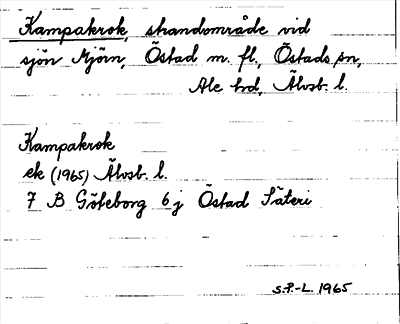 Kampakrok, strandområde vid
sjön Mjörn, Östad m. fl., Östads sn,
Ale hd, Älvsb. l.
Kampakrok
ek (1965) Älvsb. l.
7 B Göteborg 6 j Östad Säteri
S.P.-L. 1965